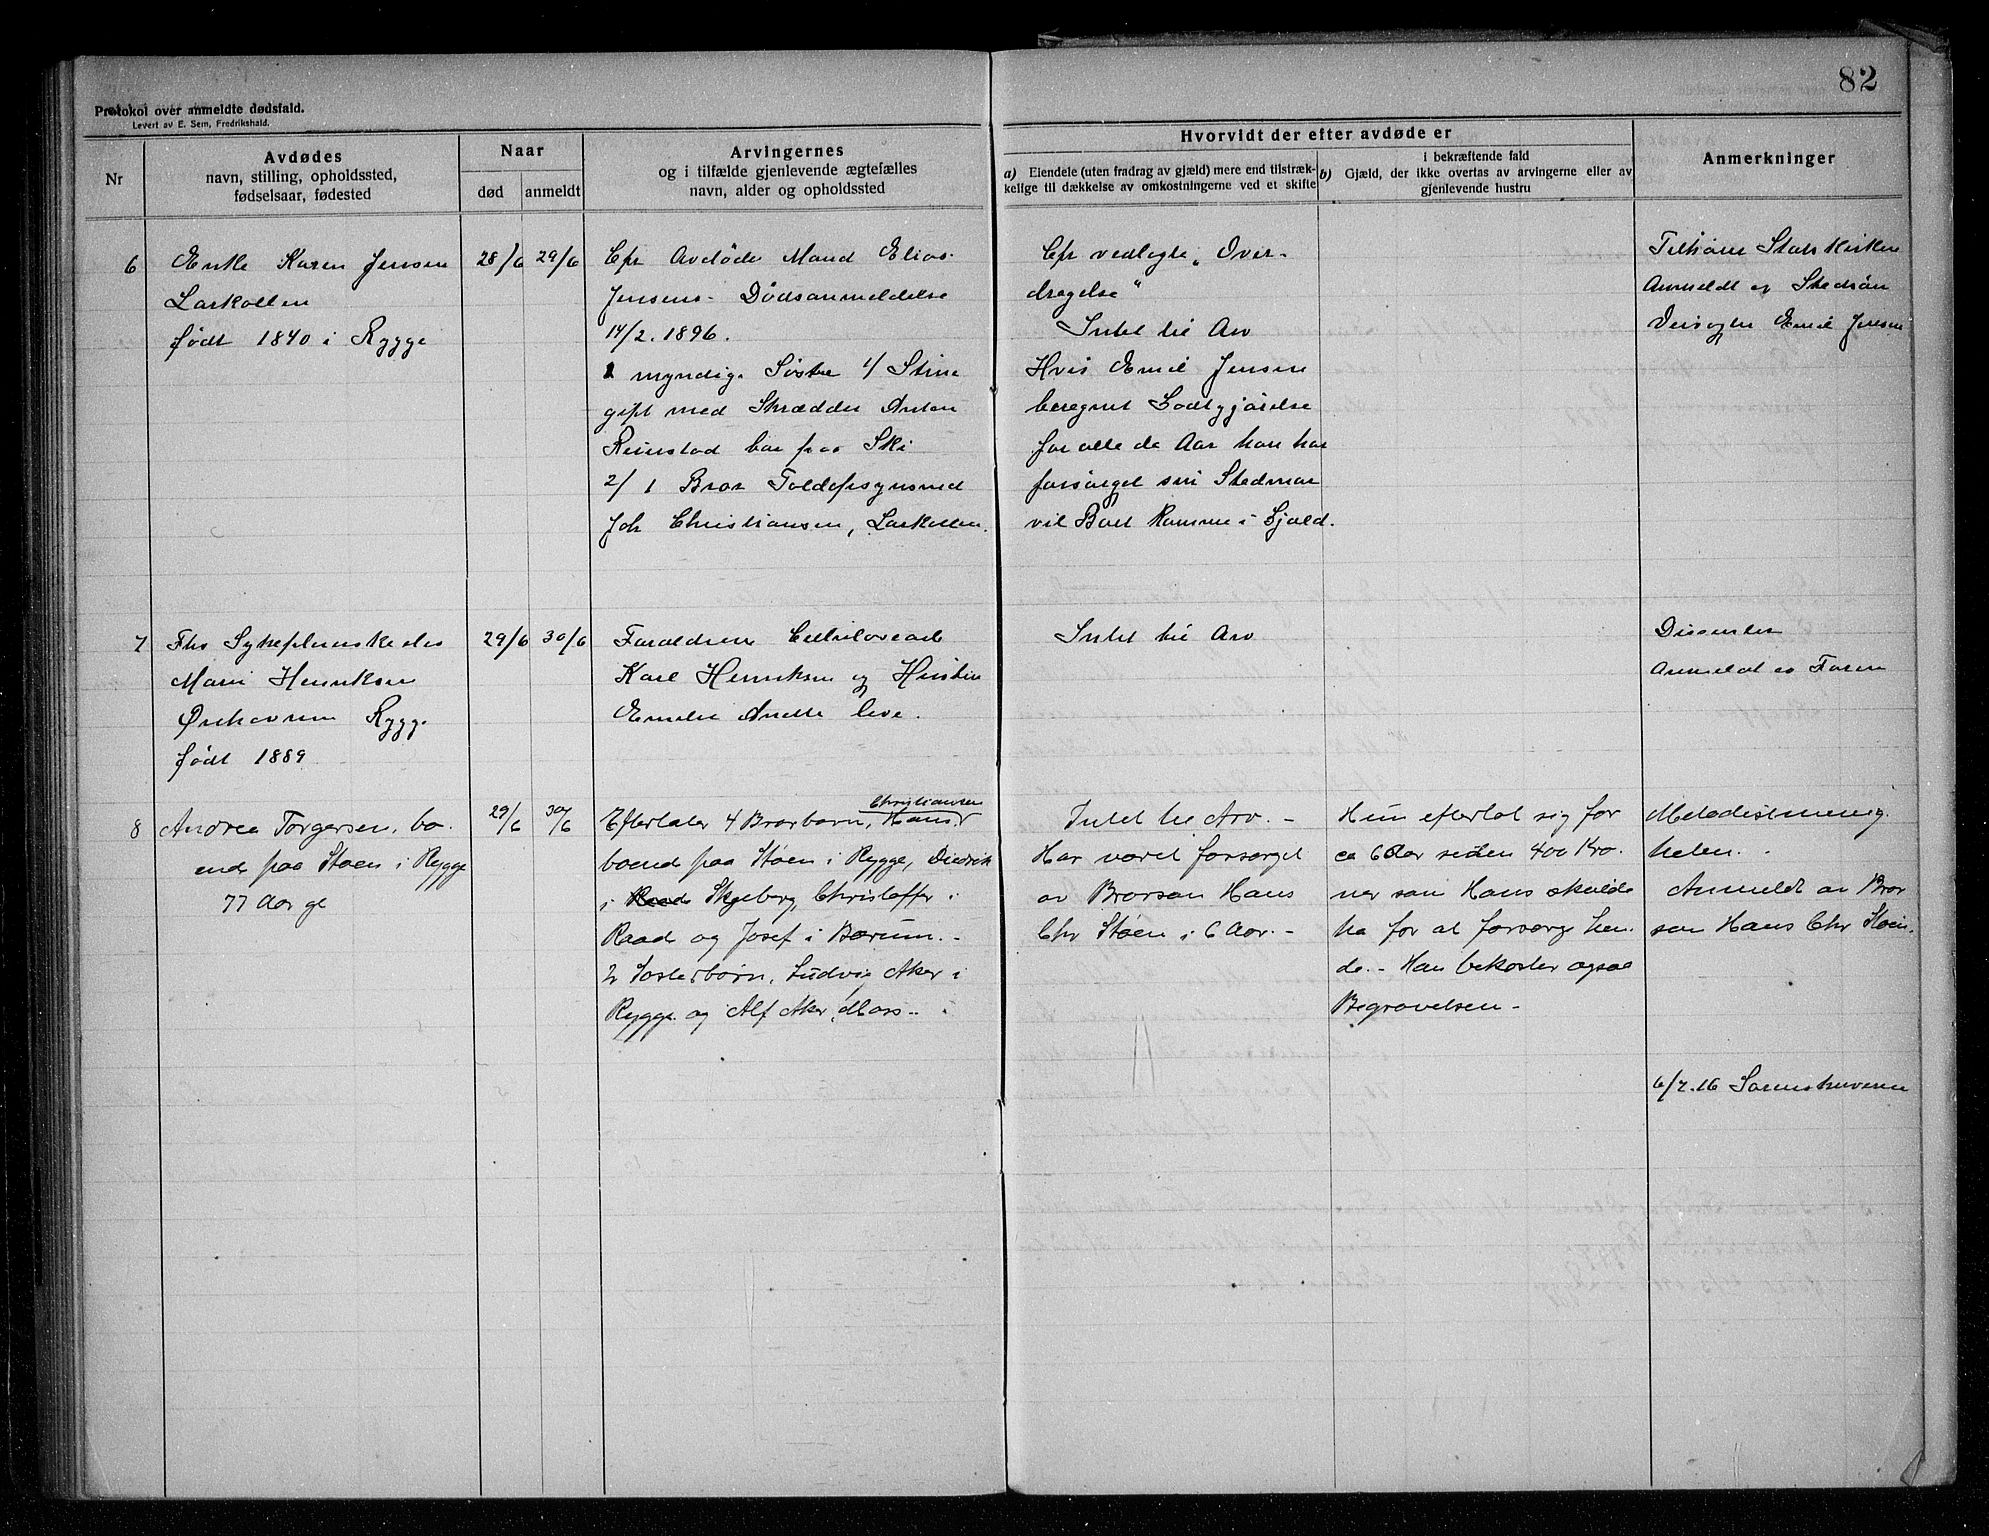 82
Protokol over anmeldte dødsfald.
Levert av E. Sem, Fredrikshald.
Nr
Avdødes
navn, stilling, opholdssted,
fødselsaar, fødested
Naar
død
anmeldt
Arvingernes
og i tilfælde gjenlevende ægtefælles
navn, alder og opholdssted
Hvorvidt der efter avdøde er
a) Eiendele (uten fradrag av gjæld) mere end tilstræk-
kelige til dækkelse av omkostningerne ved et skifte
i bekræftende fald
b) Gjæld, der ikke overtas av arvingerne eller av
gjenlevende hustru
Anmerkninger
6
Enke Karen Jensen
Larkollen
født 1840 i Rygge
28/6
29/6
Cfr Avdøde Mand Elias
Jensens Dødsanmeldelse
14/2. 1896.
myndige Søstre 1/ Stine
gift med Skrædder Anton
Reinstad bor paa Ski
2/ 1 Bror Toldopsynsmd
Joh Christiansen, Larkollen.
Cfr vedlagte „Over-
dragelse“
Intet til Arv
Hvis Emil Jensen
beregnet Godtgjørelse
for alle de Aar han har
forsørget sin Stedmor
vil Boet komme i Gjæld.
Tilhører Statskirken
Anmeldt av Stedsøn
Emil Jensen
7
Frk Sykepleierske
Marie Henriksen
Rygge
født 1889
29/6
30/6
Forældrene
Karl Henriksen og Hustru
Emelie Anette leve.
Intet til Arv
Dissenter
Anmeldt av Faren
8
Andrea Torgersen, bo-
ende paa Støen i Rygge
77 Aar gl
29/6
30/6
Christiansen
Efterlater 4 Brorbarn, Hans
boend paa Støen i Rygge, Diedrik
i Raad Skjeberg, Christoffer i
Raad og Josef i Bærum. -
2 Søsterbørn, Ludvig Aker i
Rygge og Alf Aker, Moss -.
Intet til Arv. -
Har været forsørget
av Brorsøn Hans
Chr Støen i 6 Aar. -
Hun efterlot sig for
ca 6 Aar siden 400 Kro-
ner som Hans skulde
ha for at forsørge hen-
de. - Han bekoster ogsaa
Begravelsen -
Metodistmenig-
heten. -
Anmeldt av Bror
søn Hans Chr Støen.
6/7. 16